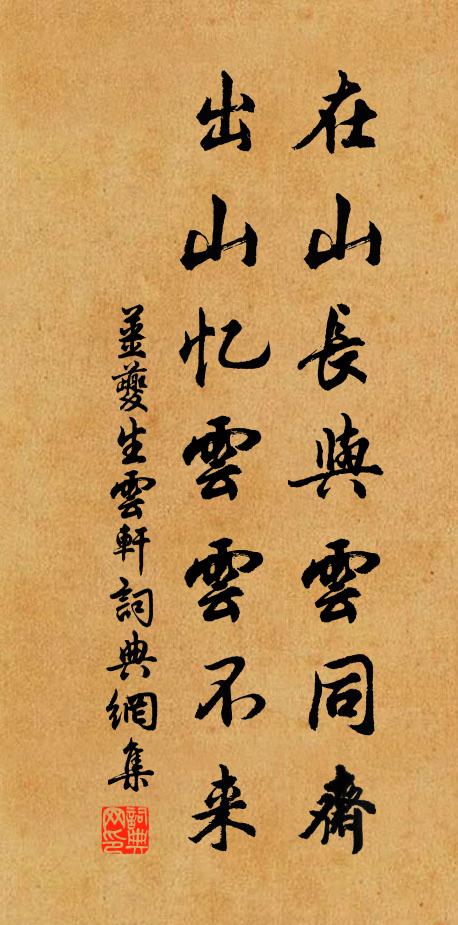 在山長與雲同齋
出山忆雲雲不来
姜夔生雲軒詞典網集
詞典网印